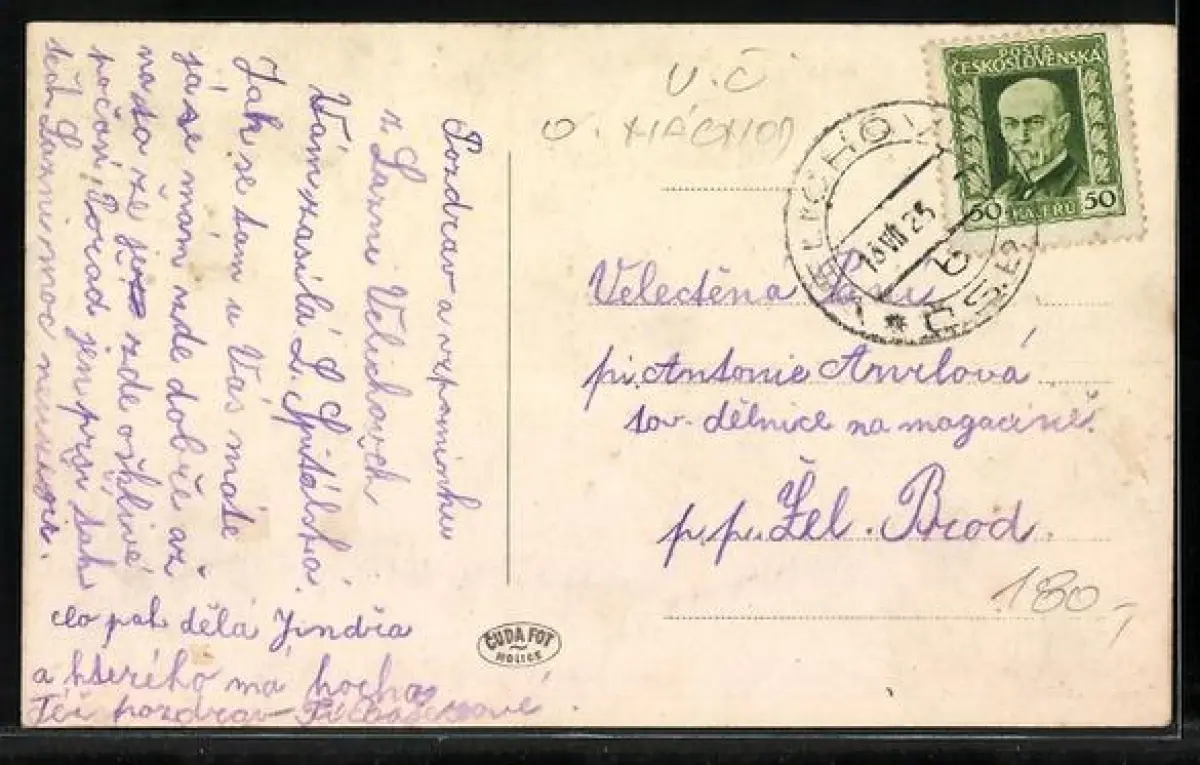 Pozdrav a vzpomínku
z Lázní Velichovek
Vám zasílá L. Špitálská.
Jak se tam u Vás máte
já se mám zde dobře až
na to že je zde ošklivé
počasí, pořád jen prší tak
těch Lázní moc neužiji.
co pak dělá Jindra
a kterého má hocha
Též pozdrav
V.Č
O. NÁCHOD
POSTA
ČESKOSLOVENSKÁ
50 HALÉRŮ 50
VELICHOV
13 VII 25
ČSR
Velectěná Paní
pí. Antonie Anrlová
tov. dělnice na magacině.
p. p. Žel. Brod.
180,-
ČUDA FOT
HOLICE